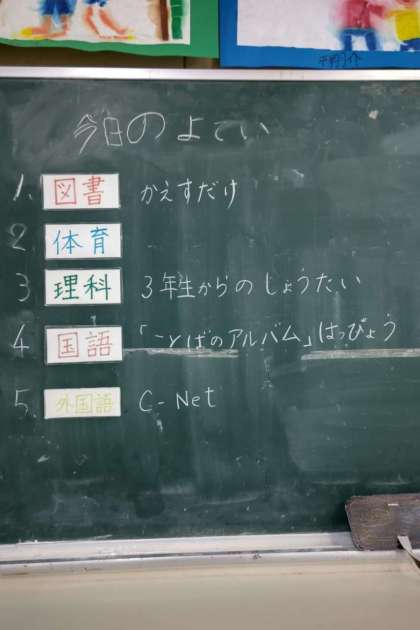 今日のよてい
1. 図書 かえすだけ
2 体育
3 理科 3年生からのしょうたい
4 国語 「ことばのアルバム」はっぴょう
5. 外国語 C-Net